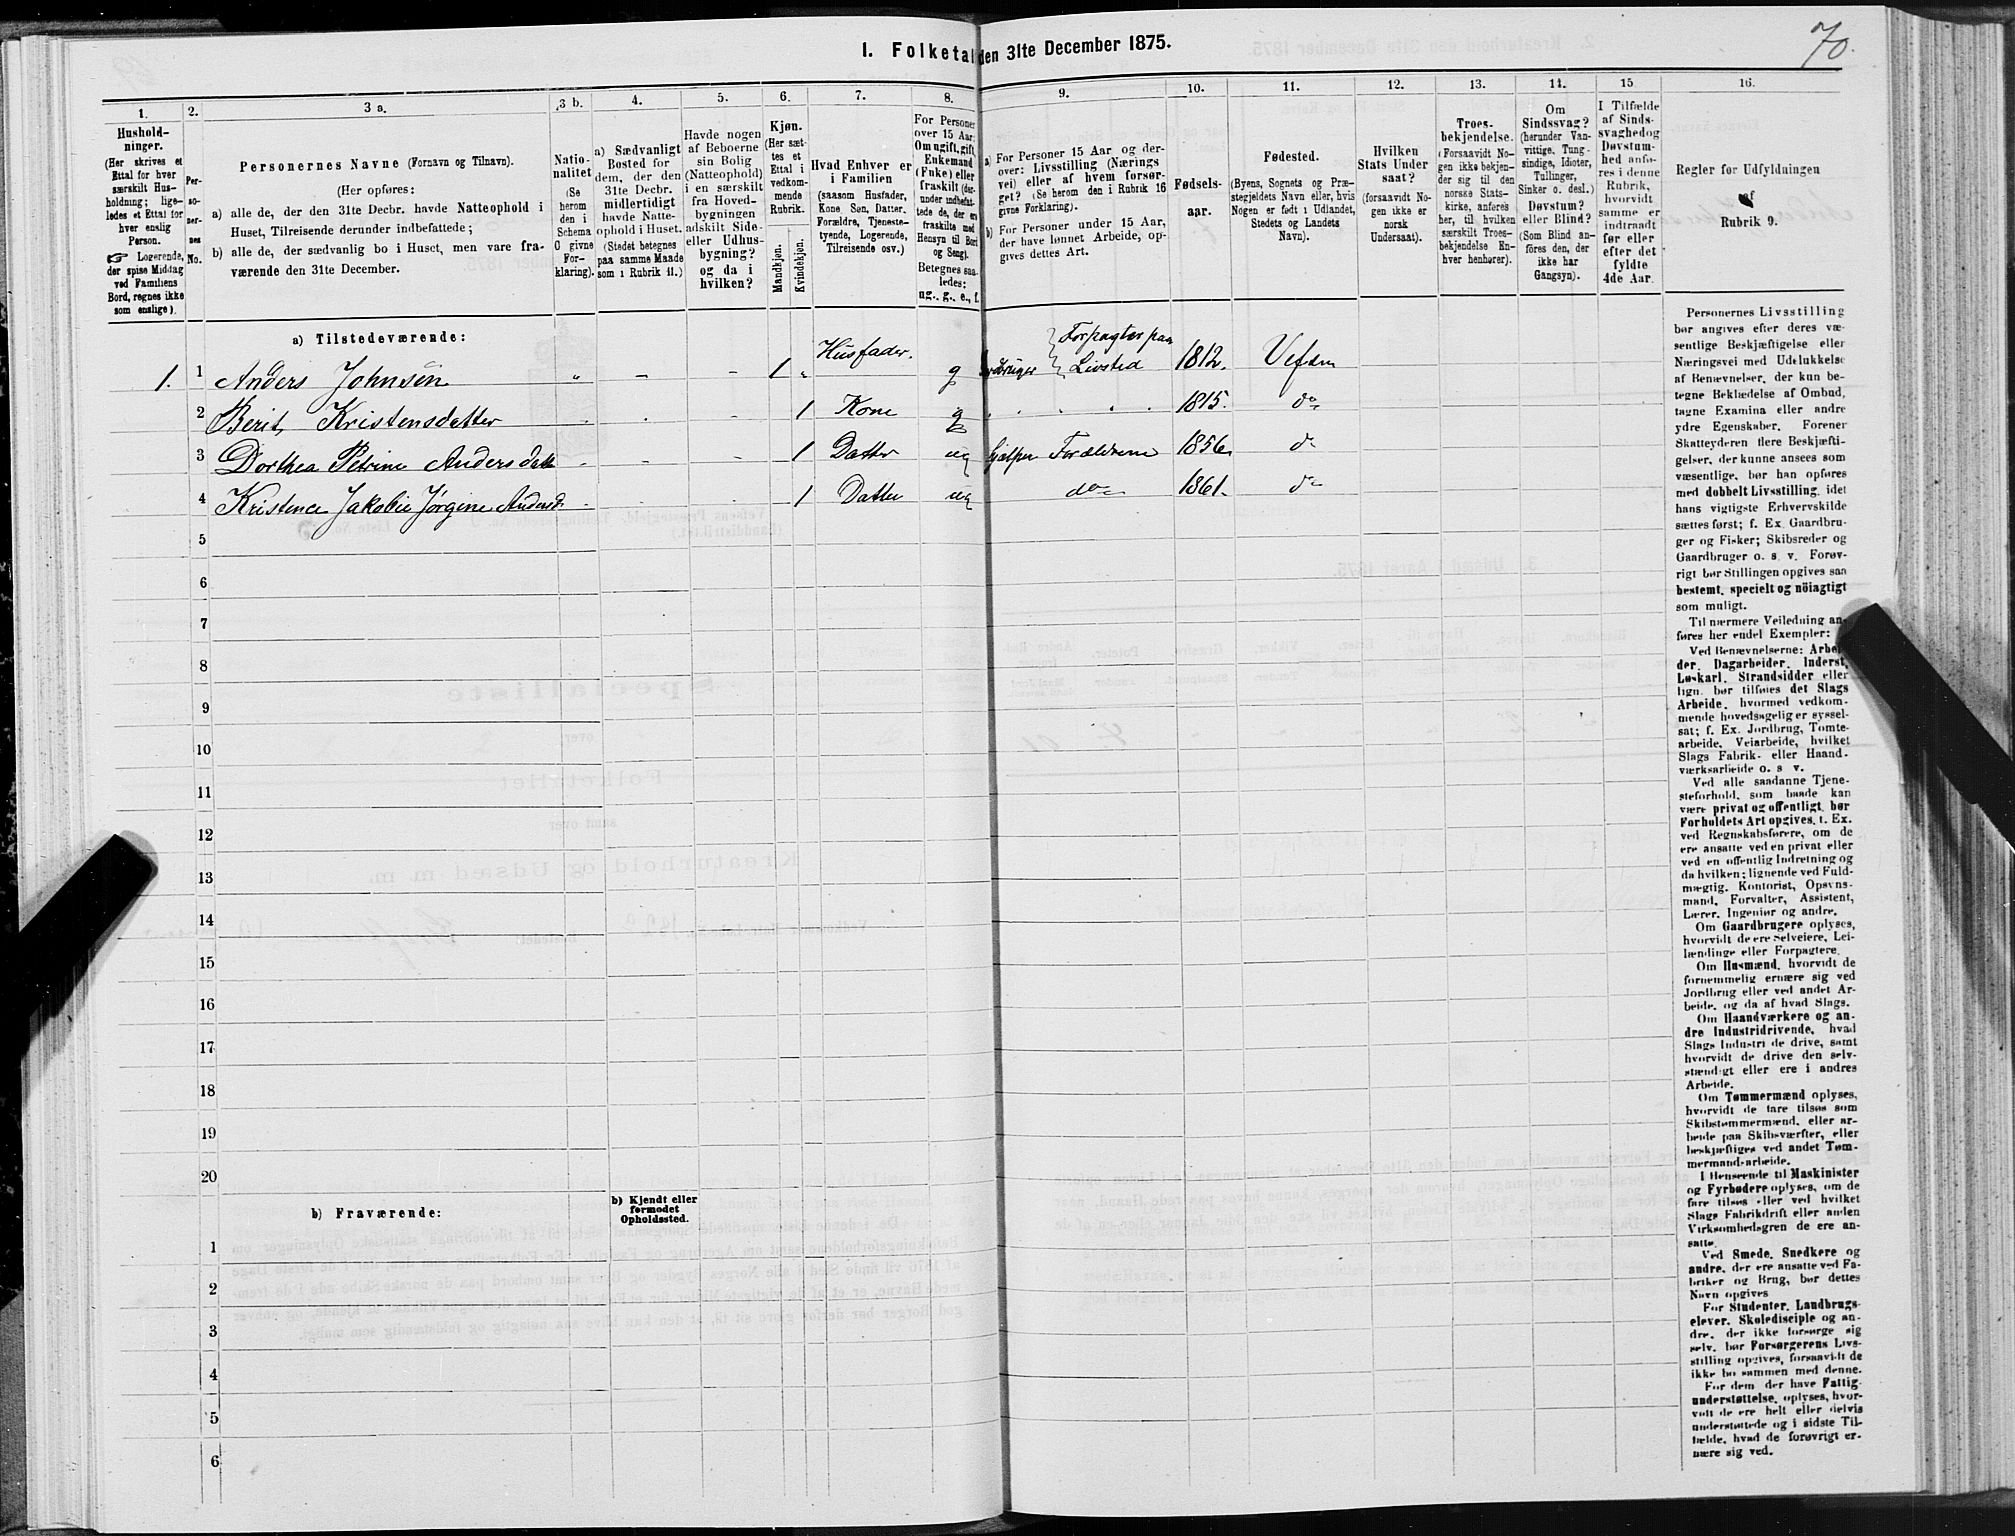 70.
I. Folketal den 31te December 1875.
1.
Hushold-
ninger.
(Her skrives et
Ettal for hver
særskilt Hus-
holdning; lige-
ledes et Ettal for
hver enslig
Person.
☞ Logerende,
der spise Middag
ved Familiens
Bord, regnes ikke
som enslige).
2.
Per-
so-
ner-
nes
No.
3 a.
Personernes Navne (Fornavn og Tilnavn).
(Her opføres:
a) alle de, der den 31te Decbr. havde Natteophold i
Huset, Tilreisende derunder indbefattede;
b) alle de, der sædvanlig bo i Huset, men vare fra-
værende den 31te December.
3 b.
Natio-
nalitet
(Se
herom
den i
Schema
O givne
For-
klaring).
4.
a) Sædvanligt
Bosted for
dem, der den
31te Decbr.
midlertidigt
havde Natte-
ophold i Huset.
(Stedet betegnes
paa samme Maade
som i Rubrik 11.)
5.
Havde nogen
af Beboerne
sin Bolig
(Natteophold)
i en særskilt
fra Hoved-
bygningen
adskilt Side-
eller Udhus-
bygning?
og da i
hvilken?
6.
Kjøn.
(Her sæt-
tes et
Ettal i
vedkom-
mende
Rubrik.
Mandkjøn.
Kvindekjøn.
7.
Hvad Enhver er
i Familien
(saasom Husfader,
Kone, Søn, Datter,
Forældre, Tjeneste-
tyende, Logerende,
Tilreisende osv.)
8.
For Personer
over 15 Aar:
Om ugift, gift,
Enkemand
(Enke) eller
fraskilt (der-
under indbefat-
tede de, der ere
fraskilte med
Hensyn til Bord
og Seng).
Betegnes saa-
ledes:
ug., g., e., f.
9.
a) For Personer 15 Aar og der-
over: Livsstilling (Nærings-
vei) eller af hvem forsør-
get? (Se herom den i Rubrik 16
givne Forklaring).
b) For Personer under 15 Aar,
der have lønnet Arbeide, op-
gives dettes Art.
10.
Fødsels-
aar.
11.
Fødested.
(Byens, Sognets og Præ-
stegjeldets Navn eller, hvis
Nogen er født i Udlandet,
Stedets og Landets
Navn).
12.
Hvilken
Stats Under-
saat?
(forsaavidt No-
gen ikke er
norsk
Undersaat).
13.
Troes-
bekjendelse.
(Forsaavidt No-
gen ikke bekjen-
der sig til den
norske Stats-
kirke, anføres
her, til hvilken
særskilt Troes-
bekjendelse En-
hver henhører).
14.
Om
Sindssvag?
(herunder Van-
vittige, Tung-
sindige, Idioter,
Tullinger,
Sinker o. desl.)
Døvstum?
eller Blind?
(Som Blind an-
føres den, der
ikke har
Gangsyn).
15.
I Tilfælde
af Sinds-
svaghed og
Døvstum-
hed anfø-
res i denne
Rubrik,
hvorvidt
samme er
indtraadt
før eller
efter det
fyldte
4de Aar.
16.
Regler for Udfyldningen
af
Rubrik 9.
a) Tilstedeværende:
1. 1 Anders Johnsen „ - - 1 „ Husfader. g Jordbruger Forpagter paa Livstid 1812. Vefsn
2 Berit Kristensdatter 1 Kone g 1815. do
3 Dorthea Petrine Andersdatt 1 Datter ug hjælper Forældrene 1856. do
4 Kristence Jakobie Jørgine Andersd 1 Datter ug do 1861. do
5
6
7
8
9
10
11
12
13
14
15
16
17
18
19
20
b) Fraværende:
b) Kjendt eller
formodet
Opholdssted.
1
2
3
4
5
6
Personernes Livsstilling
bør angives efter deres væ-
sentlige Beskjæftigelse eller
Næringsvei med Udelukkelse
af Benævnelser, der kun be-
tegne Beklædelse af Ombud,
tagne Examina eller andre
ydre Egenskaber. Forener
Skatteyderen flere Beskjæfti-
gelser, der kunne ansees som
væsentlige, bør han opføres
med dobbelt Livsstilling, idet
hans vigtigste Erhvervskilde
sættes først; f. Ex. Gaardbru-
ger og Fisker; Skibsreder og
Gaardbruger o. s. v. Forøv-
rigt bør Stillingen opgives saa
bestemt, specielt og nöiagtigt
som muligt.
Til nærmere Veiledning an-
føres her endel Exempler:
Ved Benævnelserne: Arbei-
der, Dagarbeider, Inderst,
Løskarl, Strandsidder eller
lign. bør tilføies det Slags
Arbeide, hvormed vedkom-
mende hovedsagelig er syssel-
sat; f. Ex. Jordbrug, Tomte-
arbeide, Veiarbeide, hvilket
Slags Fabrik- eller Haand-
værksarbeide o. s. v.
Ved alle saadanne Tjene-
steforhold, som baade kan
være privat og offentligt, bør
Forholdets Art opgives, t. Ex.
ved Regnskabsførere, om de
ere ansatte ved en privat eller
ved en offentlig Indretning og
da hvilken; lignende ved Fuld-
mægtig, Kontorist, Opsyns-
mand, Forvalter, Assistent,
Lærer, Ingeniør og andre.
Om Gaardbrugere oplyses,
hvorvidt de ere Selveiere, Lei-
lændinge eller Forpagtere.
Om Husmænd, hvorvidt de
fornemmelig ernære sig ved
Jordbrug eller ved andet Ar-
beide, og da af hvad Slags.
Om Haandværkere og an-
dre Industridrivende, hvad
Slags Industri de drive, samt
hvorvidt de drive den selv-
stændigt eller ere i andres
Arbeide.
Om Tømmermænd oplyses,
hvorvidt de fare tilsøs som
Skibstømmermænd, eller ar-
beide paa Skibsværfter, eller
beskjæftiges ved andet Tøm-
mermand-arbeide.
I Henseende til Maskinister
og Fyrbødere oplyses, om de
fare tilsøs eller ved hvilket
Slags Fabrikdrift eller anden
Virksomhedsgren de ere an-
satte.
Ved Smede, Snedkere og
andre, der ere ansatte ved Fa-
briker og Brug, bør dettes
Navn opgives
For Studenter, Landbrugs-
elever, Skoledisciple og an-
dre, der ikke forsørge sig
selv, bør Forsørgerens Livs-
stilling opgives, forsaavidt de
ikke bo sammen med denne.
For dem, der have Fattig-
understøttelse, oplyses, hvor-
vidt de ere helt eller delvis
understøttede og i sidste Til-
fælde, hvad de forøvrigt er-
nære sig ved.